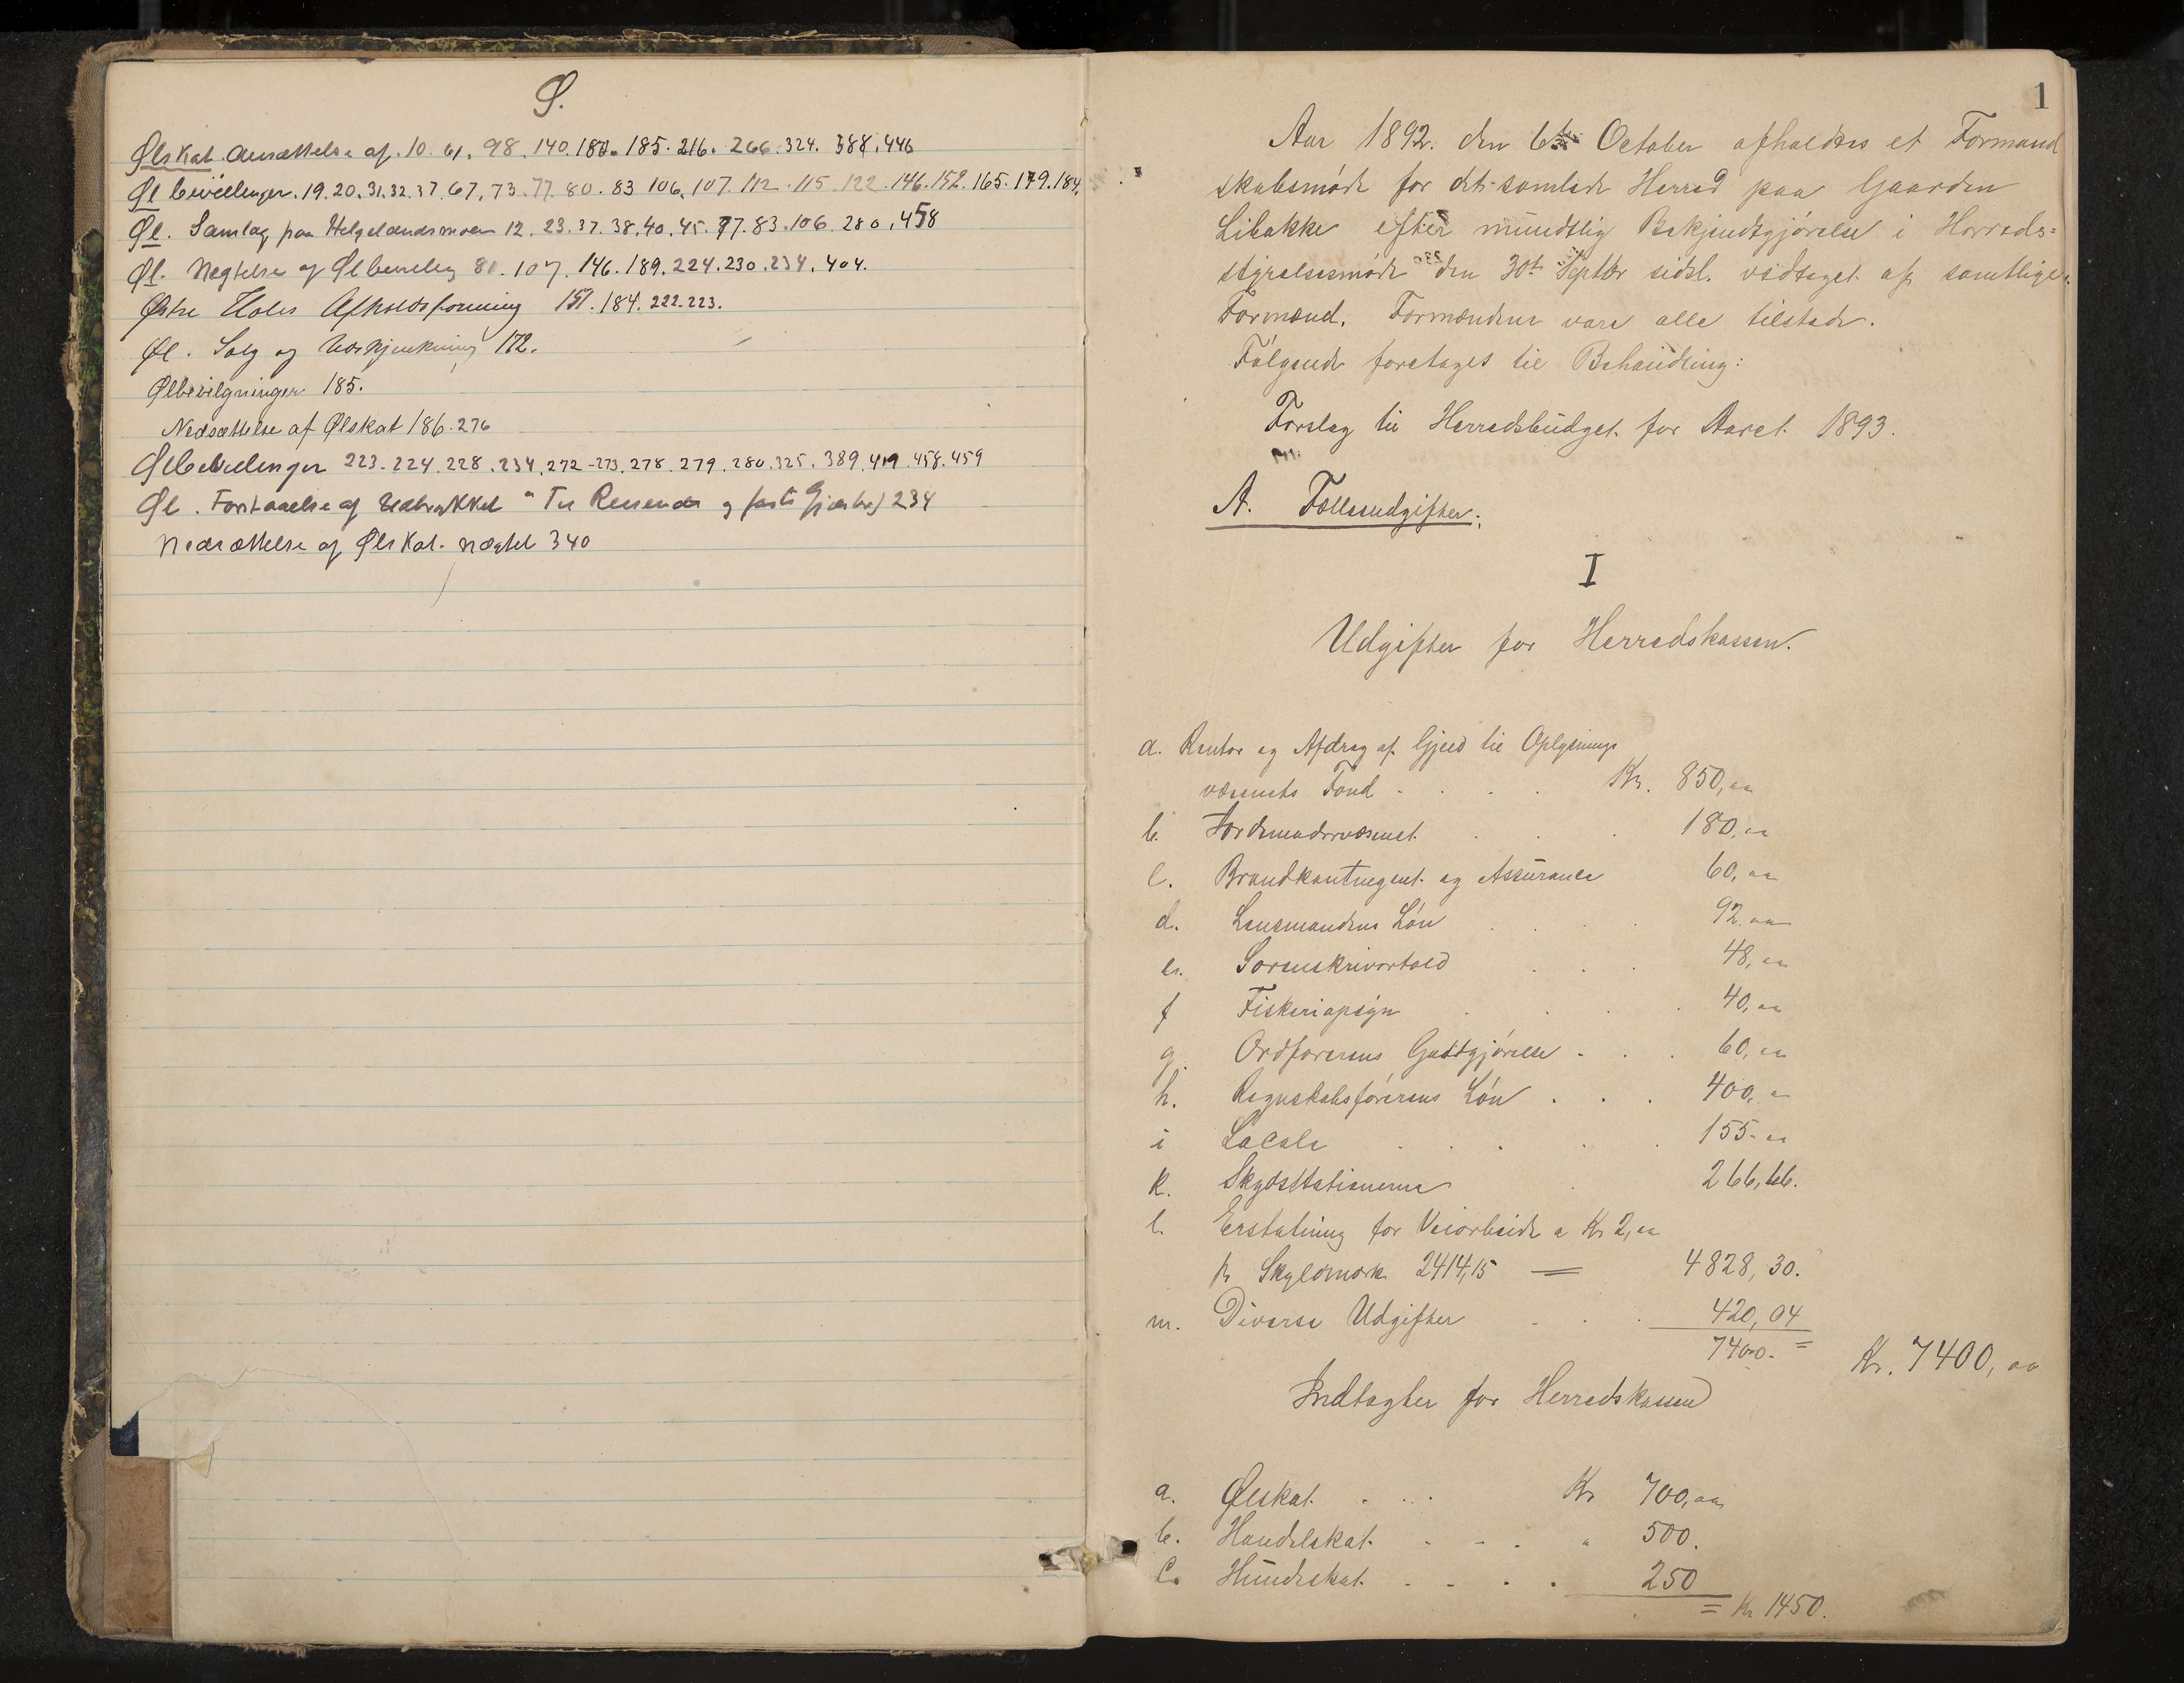 Ø.
Ølskat. Ansættelse af. 10. 61. 98. 140. 180. 185. 216. 266. 324. 388. 446
Øl bevillinger. 19. 20. 31. 32. 37. 67. 73. 77. 80. 83 106. 107. 112. 115. 122. 146. 152. 165. 179. 184.
Øl. Samlag paa Helgelandsmoen 12. 23. 37. 38. 40. 45. 77. 83. 106. 280. 458
Øl. Negtelse af Ølbevilling 80. 107. 146. 189. 224. 230. 234. 404.
Østre Holes Afholdsforening 151. 184. 222-223.
Øl. Salg og Udskjenkning 172.
Ølbevilgninger 185.
Nedsættelse af Ølskat 186. 276
Ølbevilinger 223-224. 228. 234. 272-273. 278. 279. 280. 325. 389. 419. 458. 459
Øl. Forstaaelse af Udtrykket "Til Reisende og faste Gjæster) 234
Nedsættelse af Ølskat. nægtet 340
1
Aar 1892. den 6te October afholdtes et Formand
skabsmøde for det samlede Herred paa Gaarden
Libakke efter mundtlig Bekjendtgjørelse i Herreds-
styrelsesmøde den 30te Septbr sidsl. vedtaget af samtlige
Formænd. Formændene vare alle tilstede.
Følgende foretages til Behandling:
Forslag til Herredsbudget for Aaret 1893.
A. Fællesudgifter:
I
Udgifter for Herredskassen.
a. Renter og Afdrag af Gjeld til Oplysnings
væsenets Fond . . . . Kr. 850,00
b. Jordemodervæsenet . . . 180,00
c. Brandkontingent og Assurance 60,00
d. Lensmandens Løn . . . . 92.00
e. Sorenskrivertold . . . 48,00
f Fiskeriopsyn . . . . 40,00
g. Ordførerens Godtgjørelse . . . 60,00
h. Regnskabsførerens Løn . . . 400,00
i Locale . . . . . 155.00
k. Skydsstationerne . 266,66.
l. Erstatning for Veiarbeide a Kr 2,00
pr Skyldmark 2414,15 = 4828,30.
m. Diverse Udgifter . . . 420,04
7400. = Kr. 7400,00
Indtægter for Herredskassen
a. Ølskat . . . . Kr 700,00
b. Handelskat . - - . " 500.
c. Hundeskat . - . . 250
= Kr 1450.